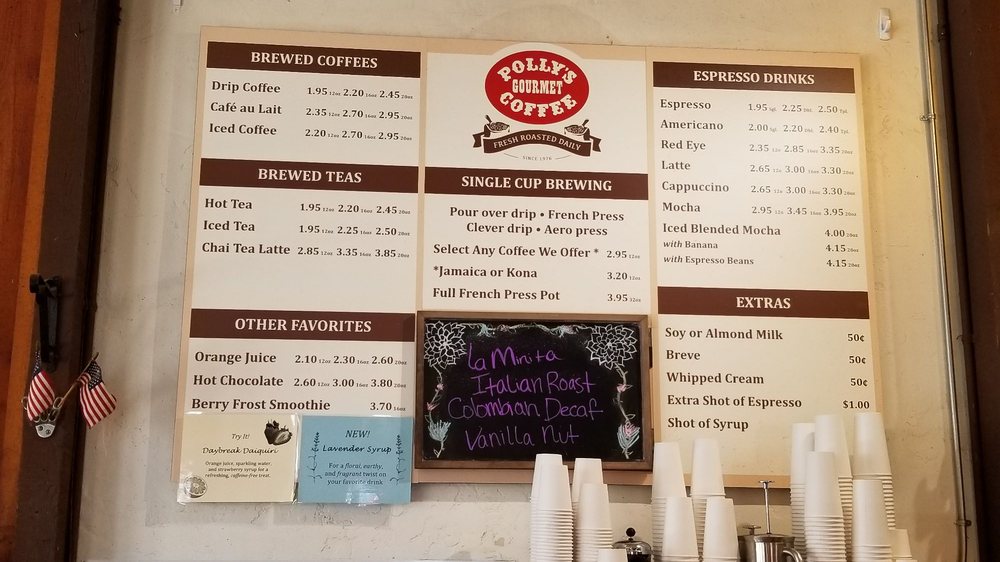 BREWED COFFEES
Drip Coffee 1.95 12oz 2.20 16oz 2.45 20oz
Café au Lait 2.35 12oz 2.70 16oz 2.95 20oz
Iced Coffee 2.20 12oz 2.70 16oz 2.95 20oz
BREWED TEAS
Hot Tea 1.95 12oz 2.20 16oz 2.45 20oz
Iced Tea 1.95 12oz 2.25 16oz 2.50 20oz
Chai Tea Latte 2.85 12oz 3.35 16oz 3.85 20oz
OTHER FAVORITES
Orange Juice 2.10 12oz 2.30 16oz 2.60 20oz
Hot Chocolate 2.60 12oz 3.00 16oz 3.80 20oz
Berry Frost Smoothie 3.70 16oz
Try It!
Daybreak Daiquiri
Orange juice, sparkling water,
and strawberry syrup for a
refreshing, caffeine-free treat.
NEW!
Lavender Syrup
For a floral, earthy,
and fragrant twist on
your favorite drink
POLLY'S
GOURMET
COFFEE
FRESH ROASTED DAILY
SINCE 1976
SINGLE CUP BREWING
Pour over drip • French Press
Clever drip • Aero press
Select Any Coffee We Offer * 2.95 12oz
*Jamaica or Kona 3.20 12oz
Full French Press Pot 3.95 32oz
La Minita
Italian Roast
Colombian Decaf
Vanilla Nut
ESPRESSO DRINKS
Espresso 1.95 Sgl. 2.25 Dbl. 2.50 Tpl.
Americano 2.00 Sgl. 2.20 Dbl. 2.40 Tpl.
Red Eye 2.35 12oz 2.85 16oz 3.35 20oz
Latte 2.65 12oz 3.00 16oz 3.30 20oz
Cappuccino 2.65 12oz 3.00 16oz 3.30 20oz
Mocha 2.95 12oz 3.45 16oz 3.95 20oz
Iced Blended Mocha 4.00 20oz
with Banana 4.15 20oz
with Espresso Beans 4.15 20oz
EXTRAS
Soy or Almond Milk 50¢
Breve 50¢
Whipped Cream 50¢
Extra Shot of Espresso $1.00
Shot of Syrup